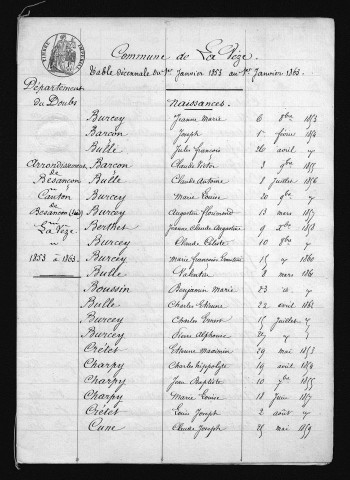 Commune de La Vèze.
Table décennale du 1er Janvier 1853 au 1er Janvier 1863.
Département
du Doubs
Arrondissement
de
Besançon
Canton
de
Besançon (Sud)
La Vèze
1853 à 1863
Naissances.
Burcey Jeanne Marie 6 8bre 1853
Barçon Joseph 1er février 1854
Bulle Jules François 26 avril "
Barçon Claude Victor 3 9bre 1855
Bulle Claude Antoine 8 Juillet 1856
Burcey Marie Louise 20 9bre "
Burcey Augustin Florimond 13 mars 1857
Berthet Jeanne Claude Augustine 9 Xbre 1858
Burcey Claude 10 8bre "
Burcey Marie Françoise 15 " 1860
Bulle Valentin 8 mars 1861
Boussin Benjamin Marie 23 "
Bulle Charles Etienne 22 avril 1862
Burcey Charles Ernest 15 Juillet "
Burcey Pierre Alphonse 27 " "
Crétet Etienne Maximin 29 mai 1853
Charpy Charles hippolyte 19 avril 1854
Charpy Jean Baptiste 10 7bre 1855
Charpy Marie Louise 18 Juin 1857
Crétet Louis Joseph 2 août "
Cune Claude Joseph 25 mai 1859